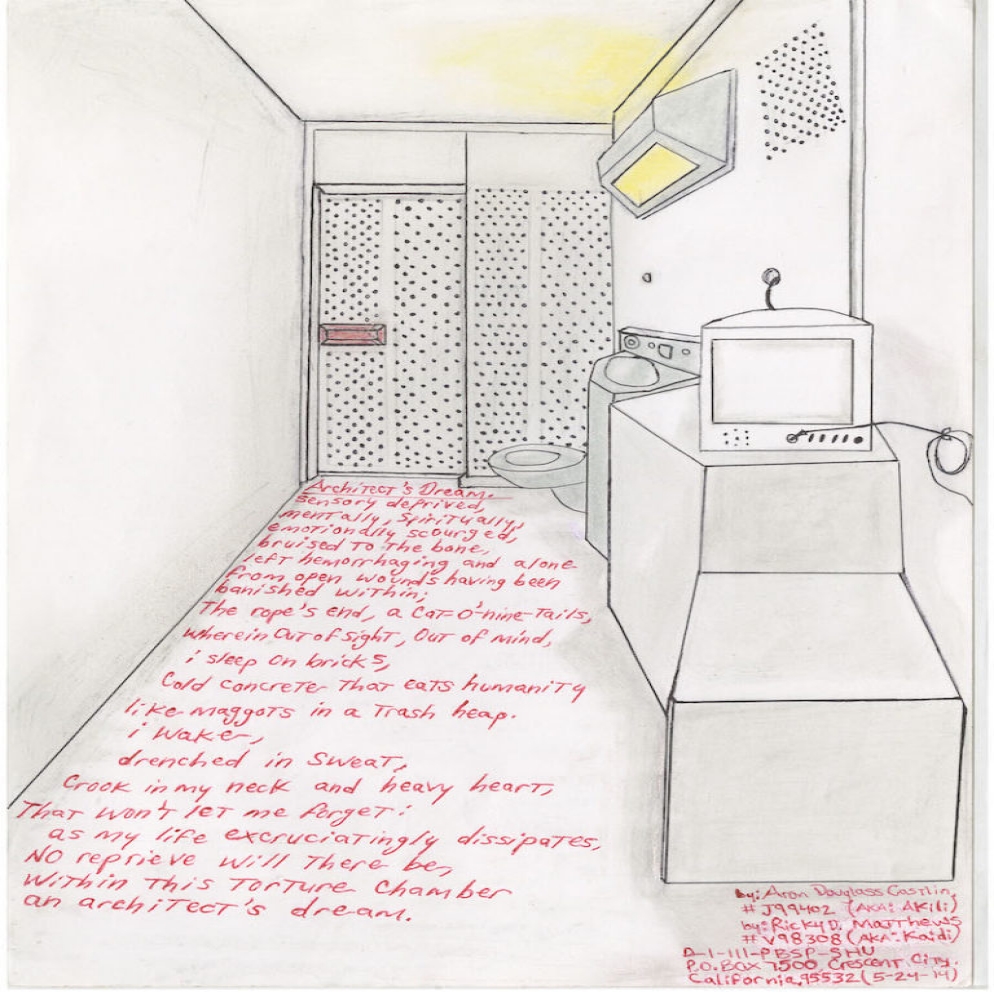 Architect's Dream.
sensory deprived,
mentally, spiritually,
emotionally scourged,
bruised to the bone,
left hemorrhaging and alone
from open wounds having been
banished within;
The rope's end, a Cat-O'-nine-Tails,
wherein out of sight, out of mind,
i sleep on bricks,
Cold concrete that eats humanity
like maggots in a trash heap.
i wake,
drenched in sweat,
Crook in my neck and heavy heart,
That won't let me forget:
as my life excruciatingly dissipates,
NO reprieve will there be,
Within this torture chamber
an architect's dream.
by: Aron Douglass Costlin,
# J99402 (AKA: Akili)
by: Ricky D. Matthews
# V98308 (AKA: Kaidi)
D-1-111-PBSP-SHU
P.O. BOX 7500 Crescent City.
California, 95532 (5-24-14)